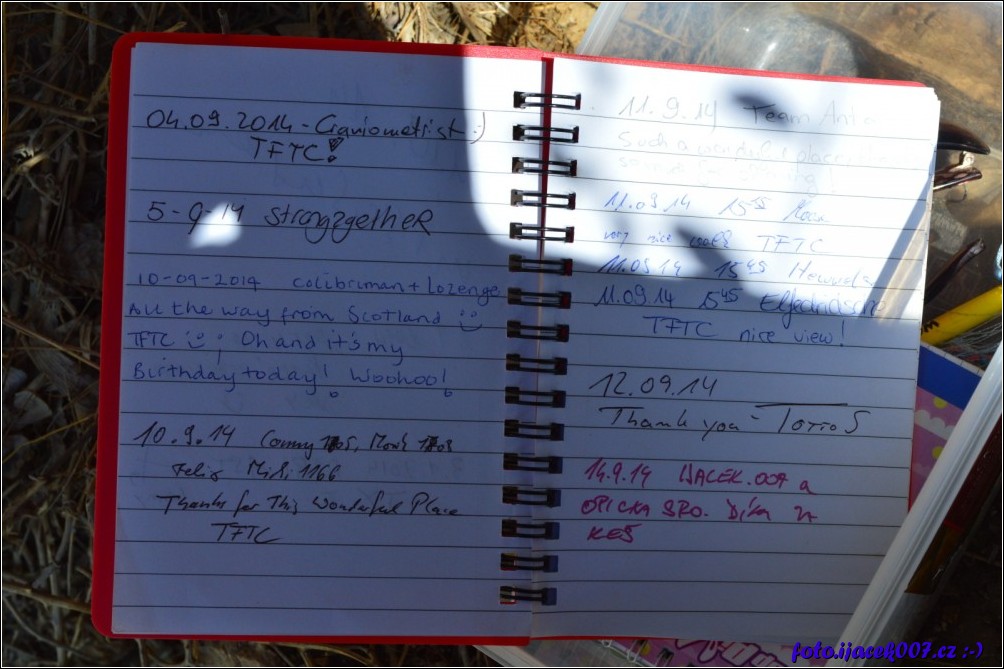 04.09.2014 - Craniometrist :)
TFTC!
5-9-14 strongzgetheR
10-09-2014 colibriman + Lozenge
All the way from Scotland
TFTC ; Oh and it's my
Birthday today! Woohoo!
10.9.14
Felix
Thanks for This Wonderful Place
TFTC
11.9.14 Team
Such a wonderful place
11.09.14 15
very nice walk TFTC
11.09.14 15 45
11.09.14 15 45
TFTC nice view!
12.09.14
Thank you -
14.9.14 IJACEK.007 a
OPICKA SRO. Díky za
KEŠ
foto.ijacek007.cz ;-)